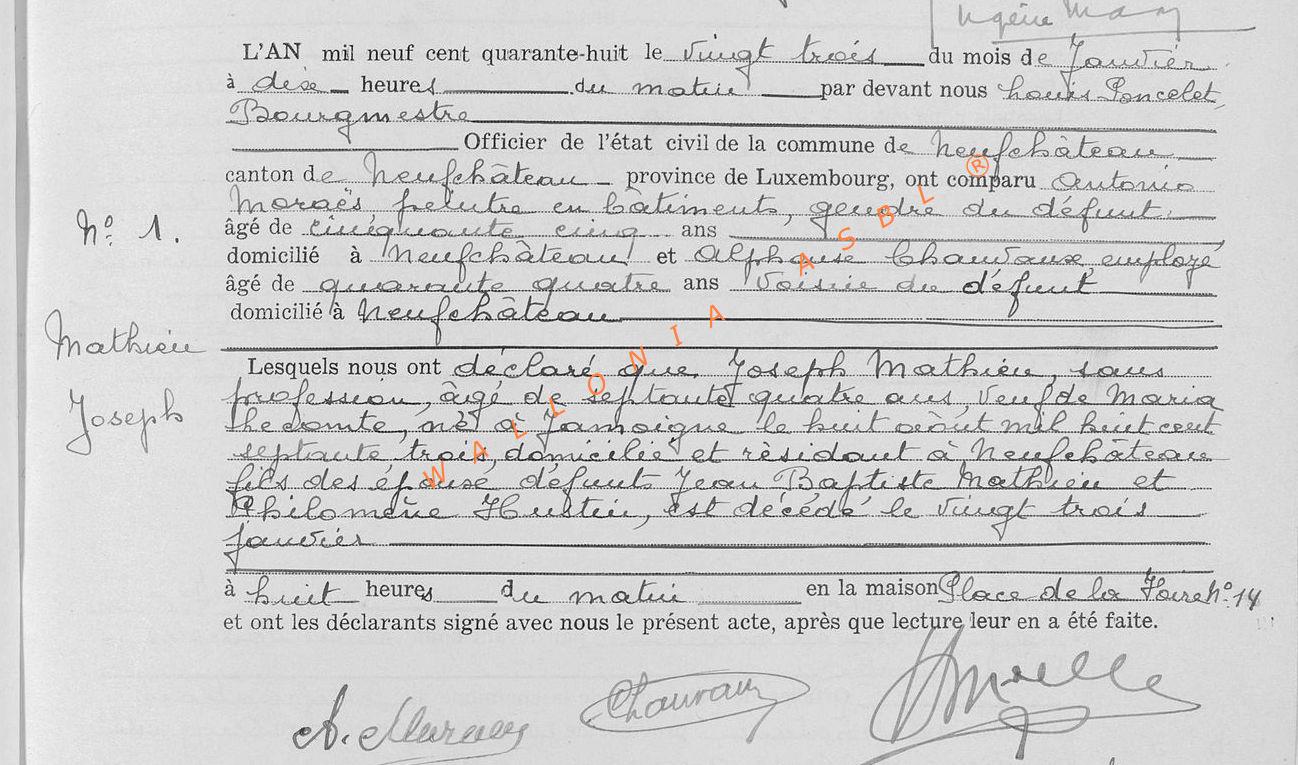 L'AN mil neuf cent quarante-huit le vingt trois du mois de Janvier
à dix heures du matin par devant nous Louis Poncelet,
Bourgmestre
Officier de l'état civil de la commune de Neufchâteau
canton de Neufchâteau province de Luxembourg, ont comparu Antonio
Moraës, peintre en bâtiments, gendre du défunt,
N° 1.
âgé de cinquante cinq ans
domicilié à Neufchâteau et Alphonse Chauvaux, employé
âgé de quarante quatre ans voisin du défunt
domicilié à Neufchâteau
Mathieu
Joseph
Lesquels nous ont déclaré que Joseph Mathieu, sans
profession, âgé de septante quatre ans, veuf de Maria
Lhecomte, né à Jamoigne le huit août mil huit cent
septante trois, domicilié et résidant à Neufchâteau
fils des époux défunts Jean Baptiste Mathieu et
Philomène Hustin, est décédé le vingt trois
janvier
à huit heures du matin en la maison Place de la Foire N° 14
et ont les déclarants signé avec nous le présent acte, après que lecture leur en a été faite.
Chauvaux
WALLONIA ASBL ®